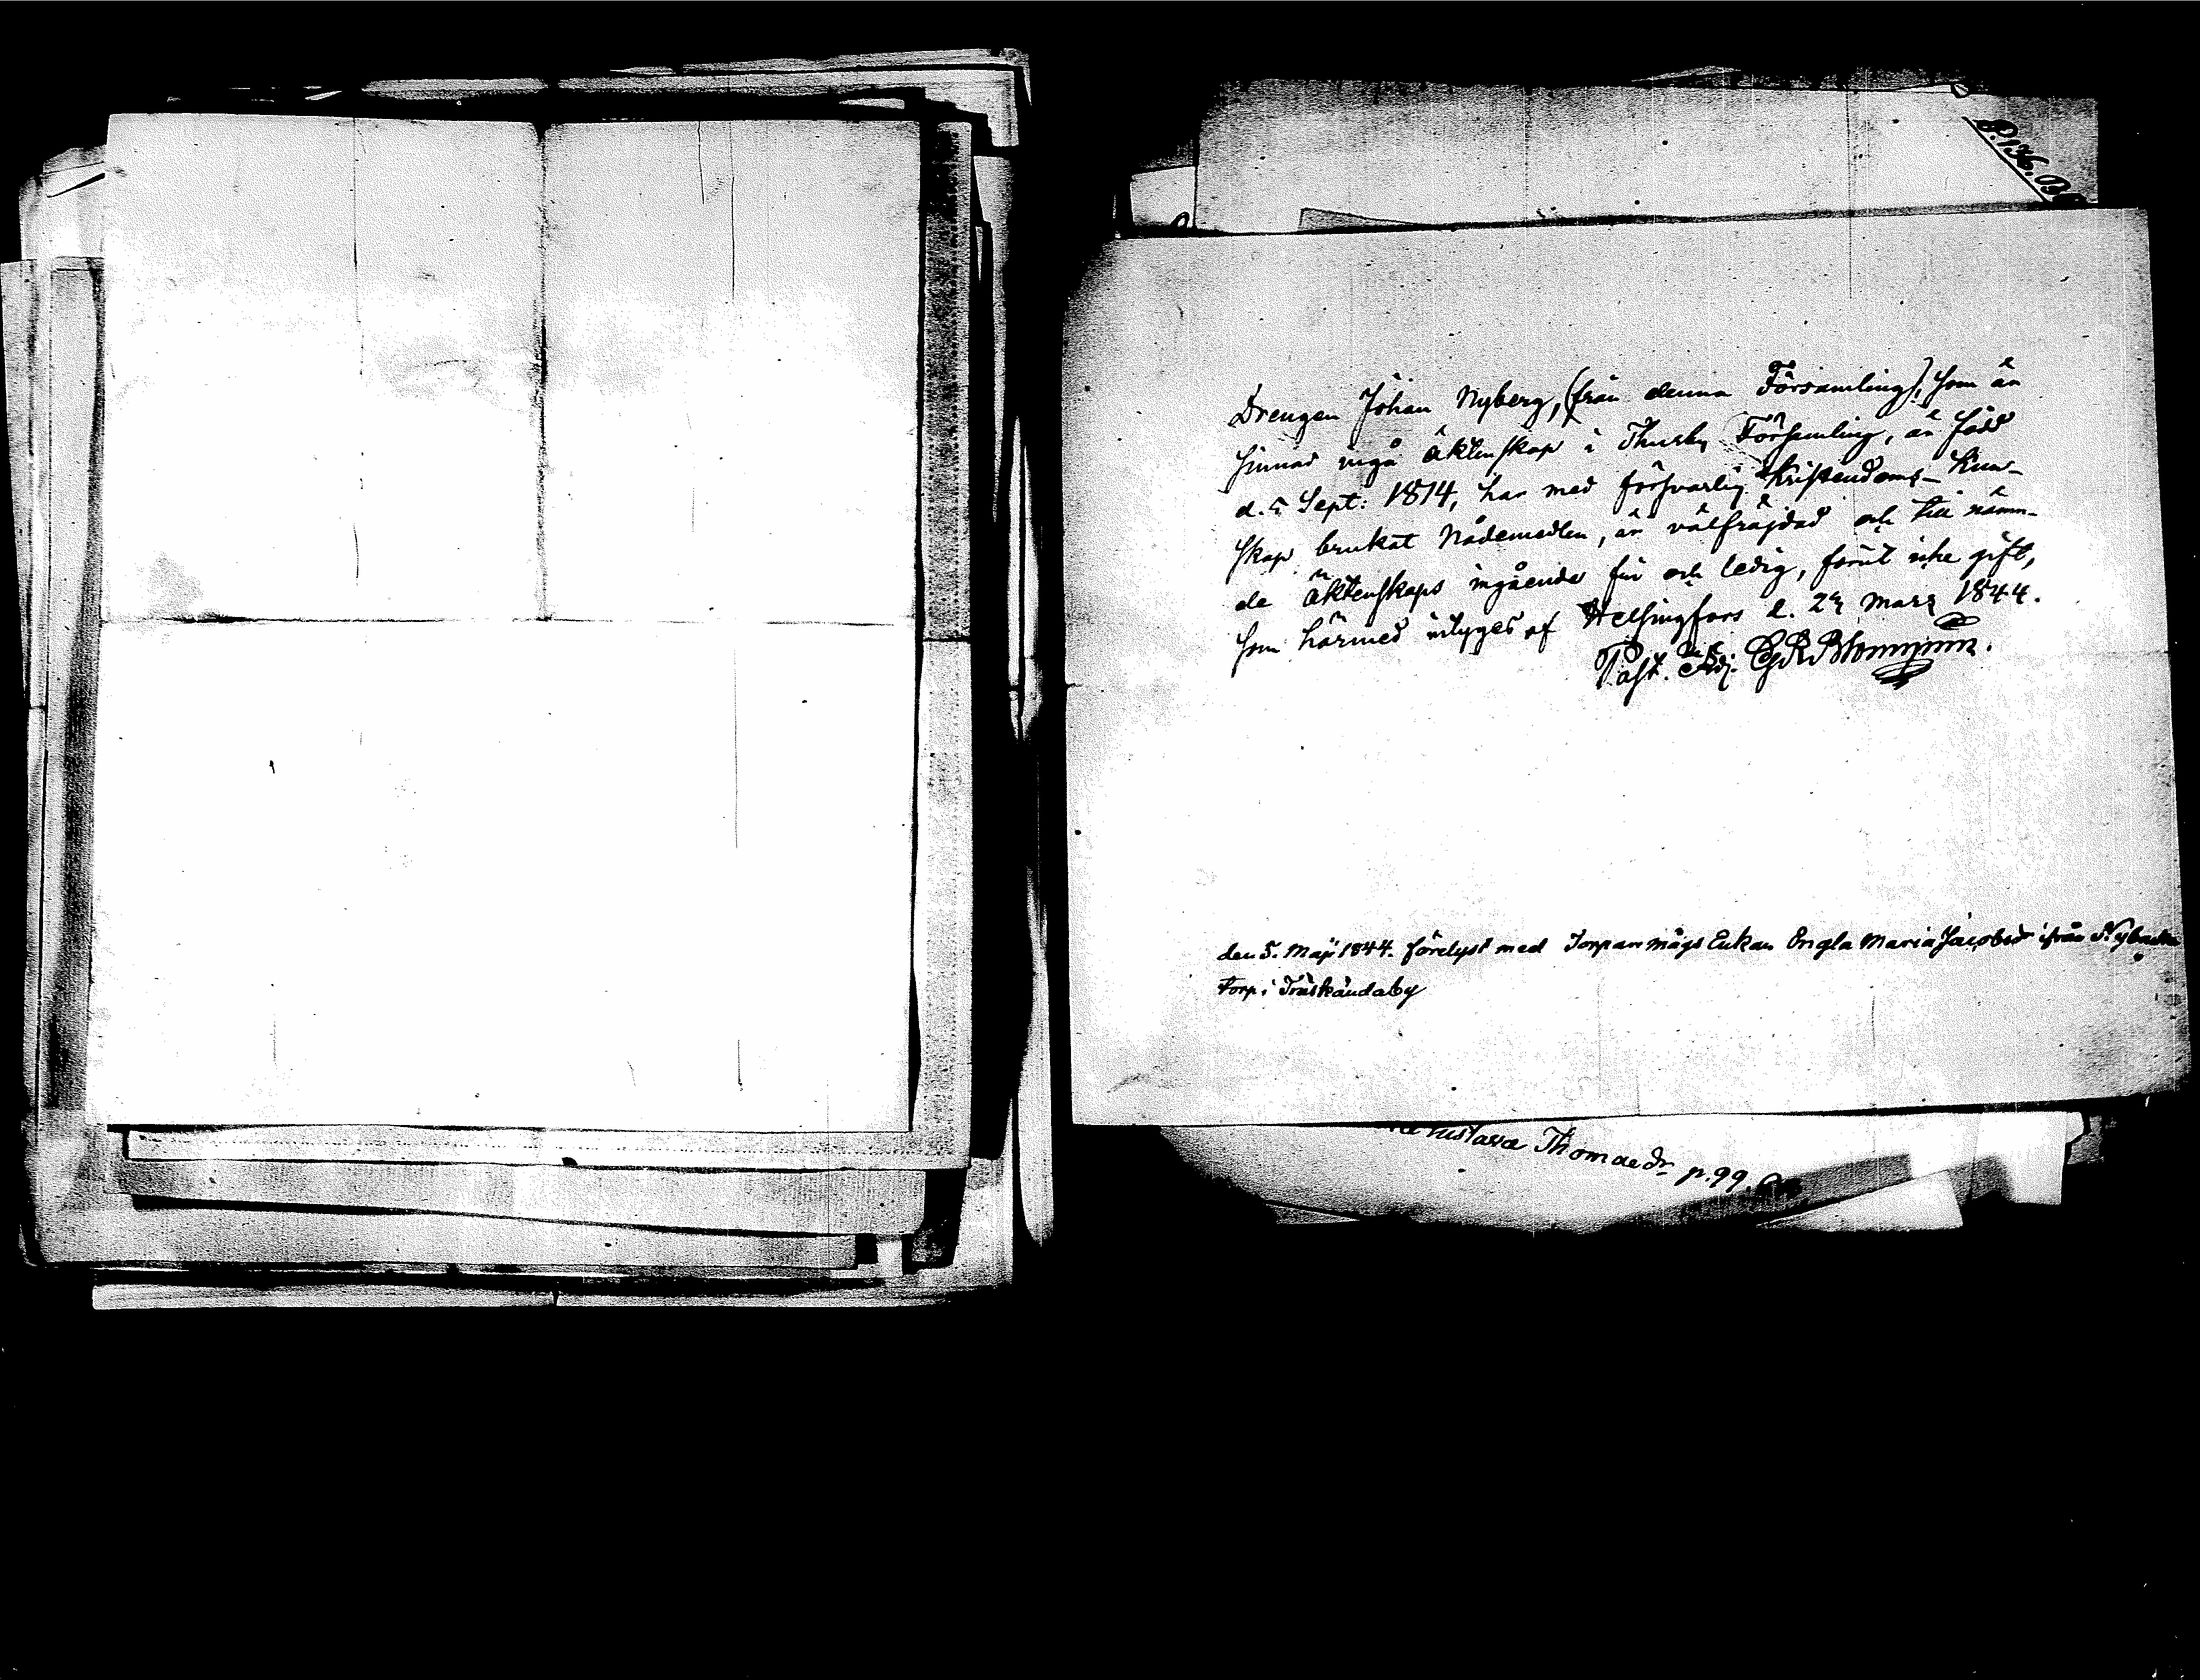 P. 136.
Drengen Johan Nyberg, (från denna Församling), som är
sinnad ingå Äktenskap i Thusby Församling, är född
d. 5 Sept: 1814, har med försvarlig Kristendoms-Kun-
skap brukat Nådemedlen, är välfräjdad och till nämn-
de Äktenskaps ingående fri och ledig, förut icke gift,
som härmed intygas af Helsingfors d. 29 Mars 1844.
Past. Adj.
den 5. Maji 1844. förelyst med Torparmågs Enkan Engla Maria Jacobsdr ifrån Nybacka
Torp i Träskändaby
Thomaedr p. 99.